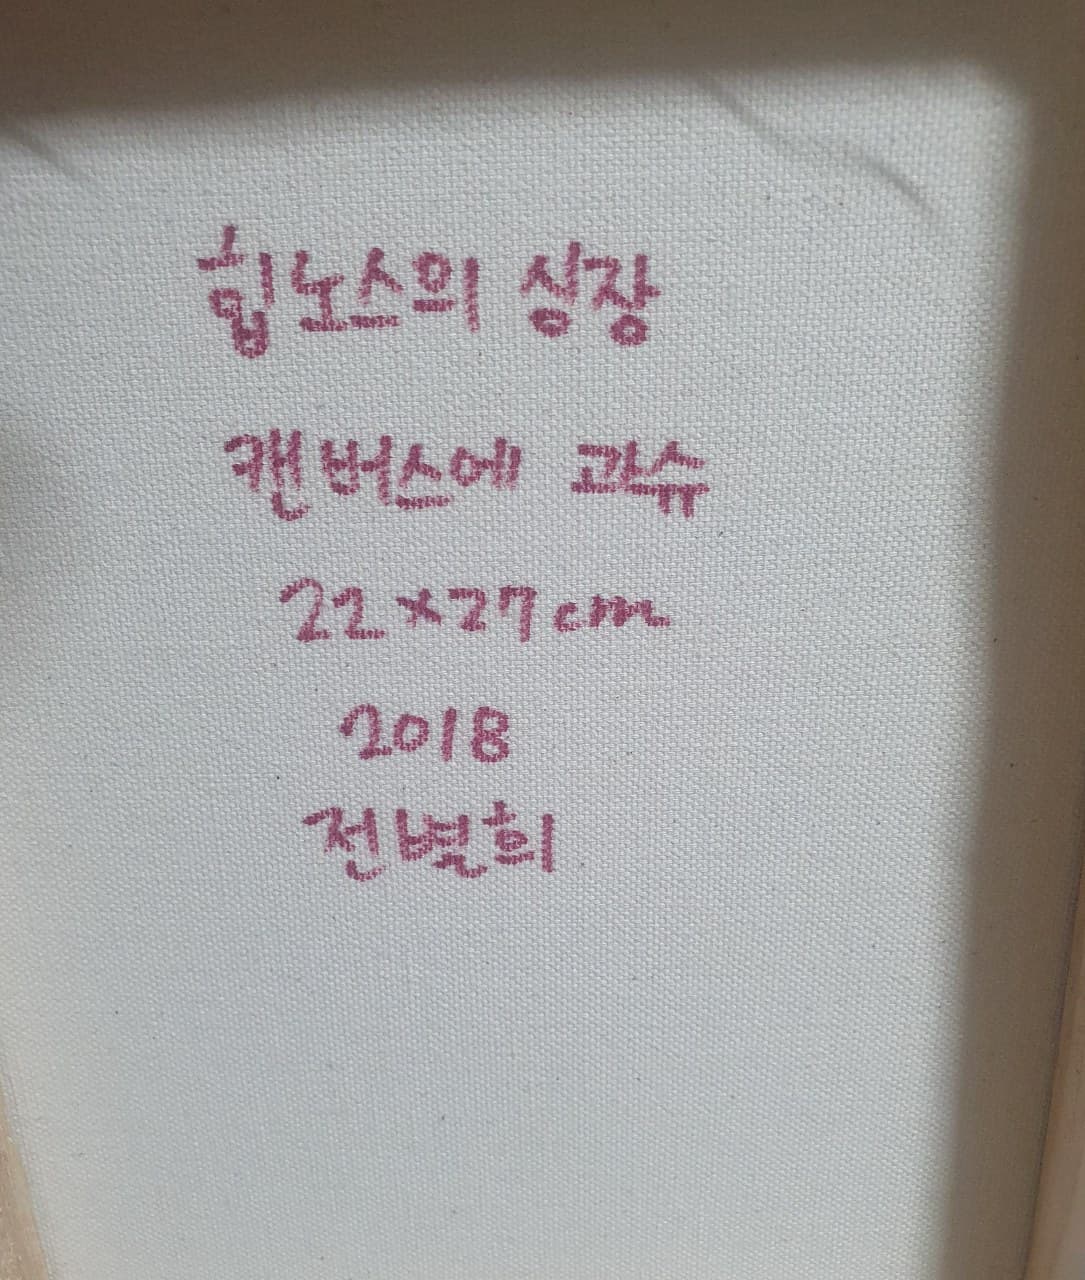 힙노스의 싱장
캔버스에 과슈
22×27cm
2018
전별희